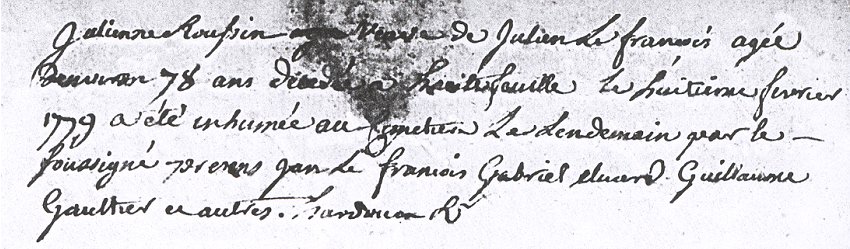 Julienne Roussin Veuve de Julien Le francois agée
denviron 78 ans décédée a hautefeuille le huitieme fevrier
1779 a été inhumée au cimetiere Le Lendemain par le
soussigné prenns jan Le francois Gabriel eluard Guillaume
Gaultier et autres. hardouin